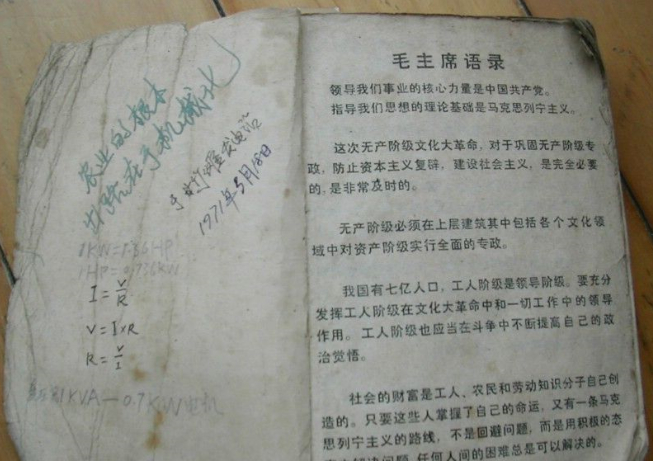 农业的根本
出路在于机械化
1971年5月18日
1KW=1.36HP
1HP=0.736KW
I=V/R
V=I×R
R=V/I
1KVA—0.7KW电机
毛主席语录
领导我们事业的核心力量是中国共产党。
指导我们思想的理论基础是马克思列宁主义。
这次无产阶级文化大革命,对于巩固无产阶级专
政,防止资本主义复辟,建设社会主义,是完全必要
的,是非常及时的。
无产阶级必须在上层建筑其中包括各个文化领
域中对资产阶级实行全面的专政。
我国有七亿人口,工人阶级是领导阶级。要充分
发挥工人阶级在文化大革命中和一切工作中的领导
作用。工人阶级也应当在斗争中不断提高自己的政
治觉悟。
社会的财富是工人、农民和劳动知识分子自己创
造的。只要这些人掌握了自己的命运,又有一条马克
思列宁主义的路线,不是回避问题,而是用积极的态
解决问题,任何人间的困难总是可以解决的。